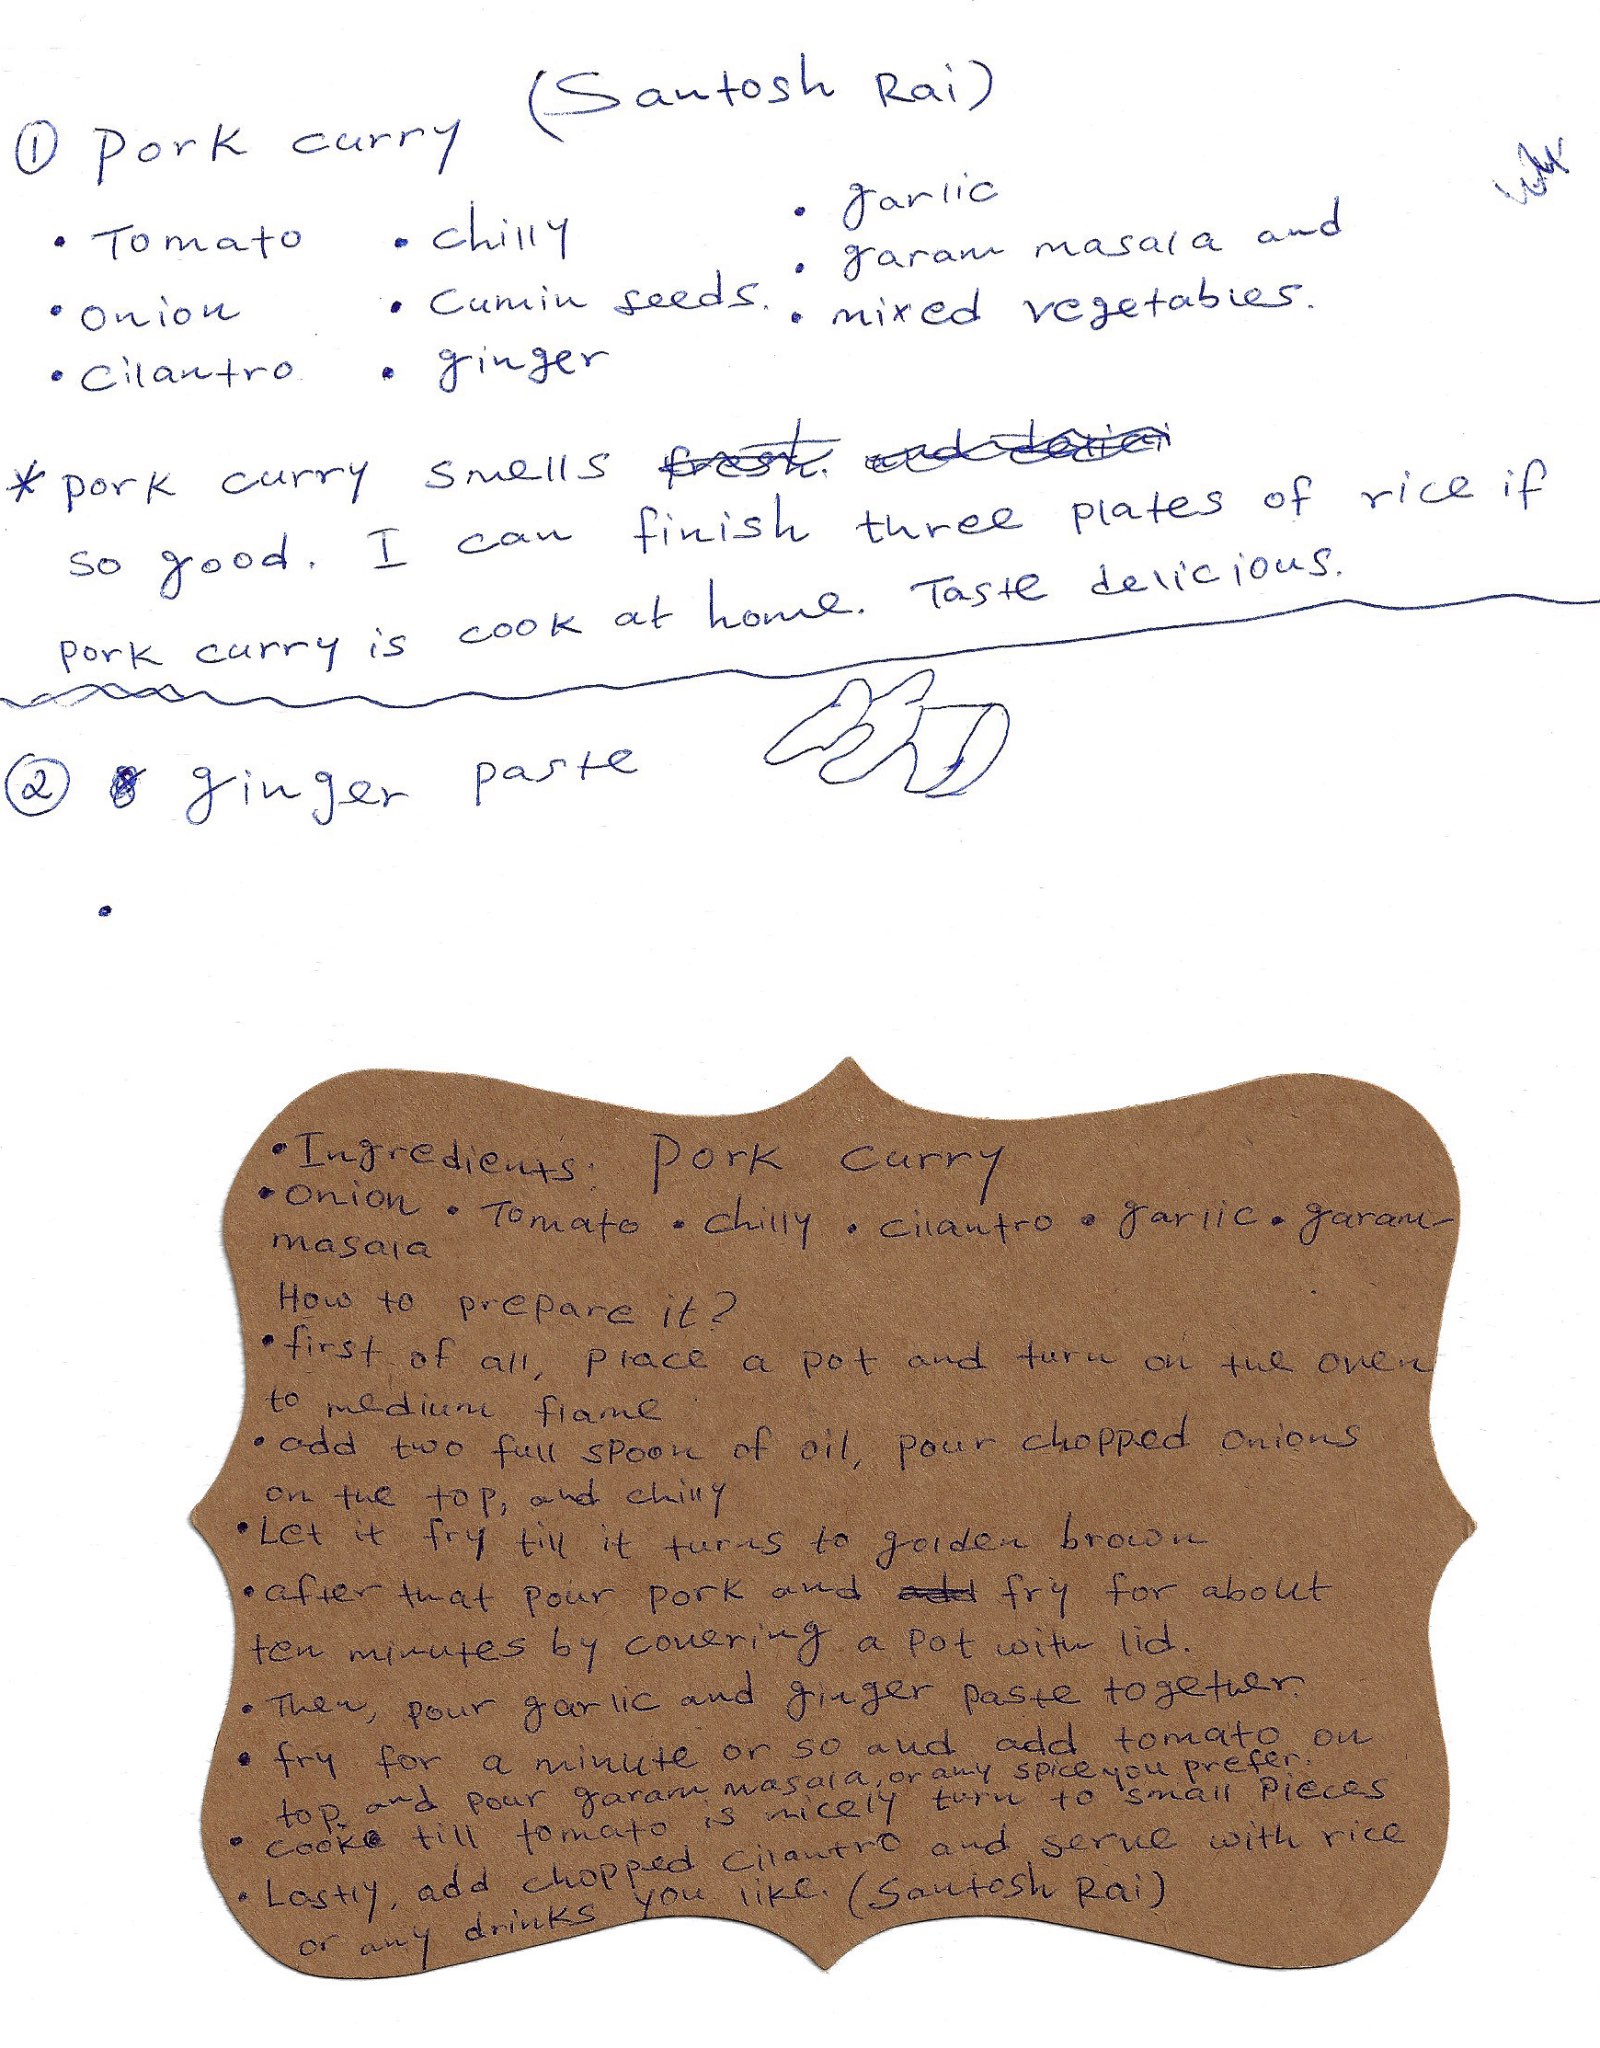 (Santosh Rai)
① Pork curry
• Tomato • chilly • garlic
• onion • Cumin seeds. • garam masala and
• cilantro • ginger • mixed vegetables.
* pork curry smells ~~fresh.~~ ~~and delici~~
so good. I can finish three plates of rice if
pork curry is cook at home. Taste delicious.
② ginger paste
•
• Ingredients: Pork curry
• onion • Tomato • chilly • cilantro • garlic • garam-
masala
How to prepare it?
• first of all, place a pot and turn on the oven
to medium flame
• add two full spoon of oil, pour chopped onions
on the top, and chilly
• Let it fry till it turns to golden brown
• after that pour pork and ~~add~~ fry for about
ten minutes by covering a pot with lid.
• Then, pour garlic and ginger paste together.
• fry for a minute or so and add tomato on
top, and pour garam masala, or any spice you prefer.
• cook till tomato is nicely turn to small pieces
• Lastly, add chopped cilantro and serve with rice
or any drinks you like. (Santosh Rai)